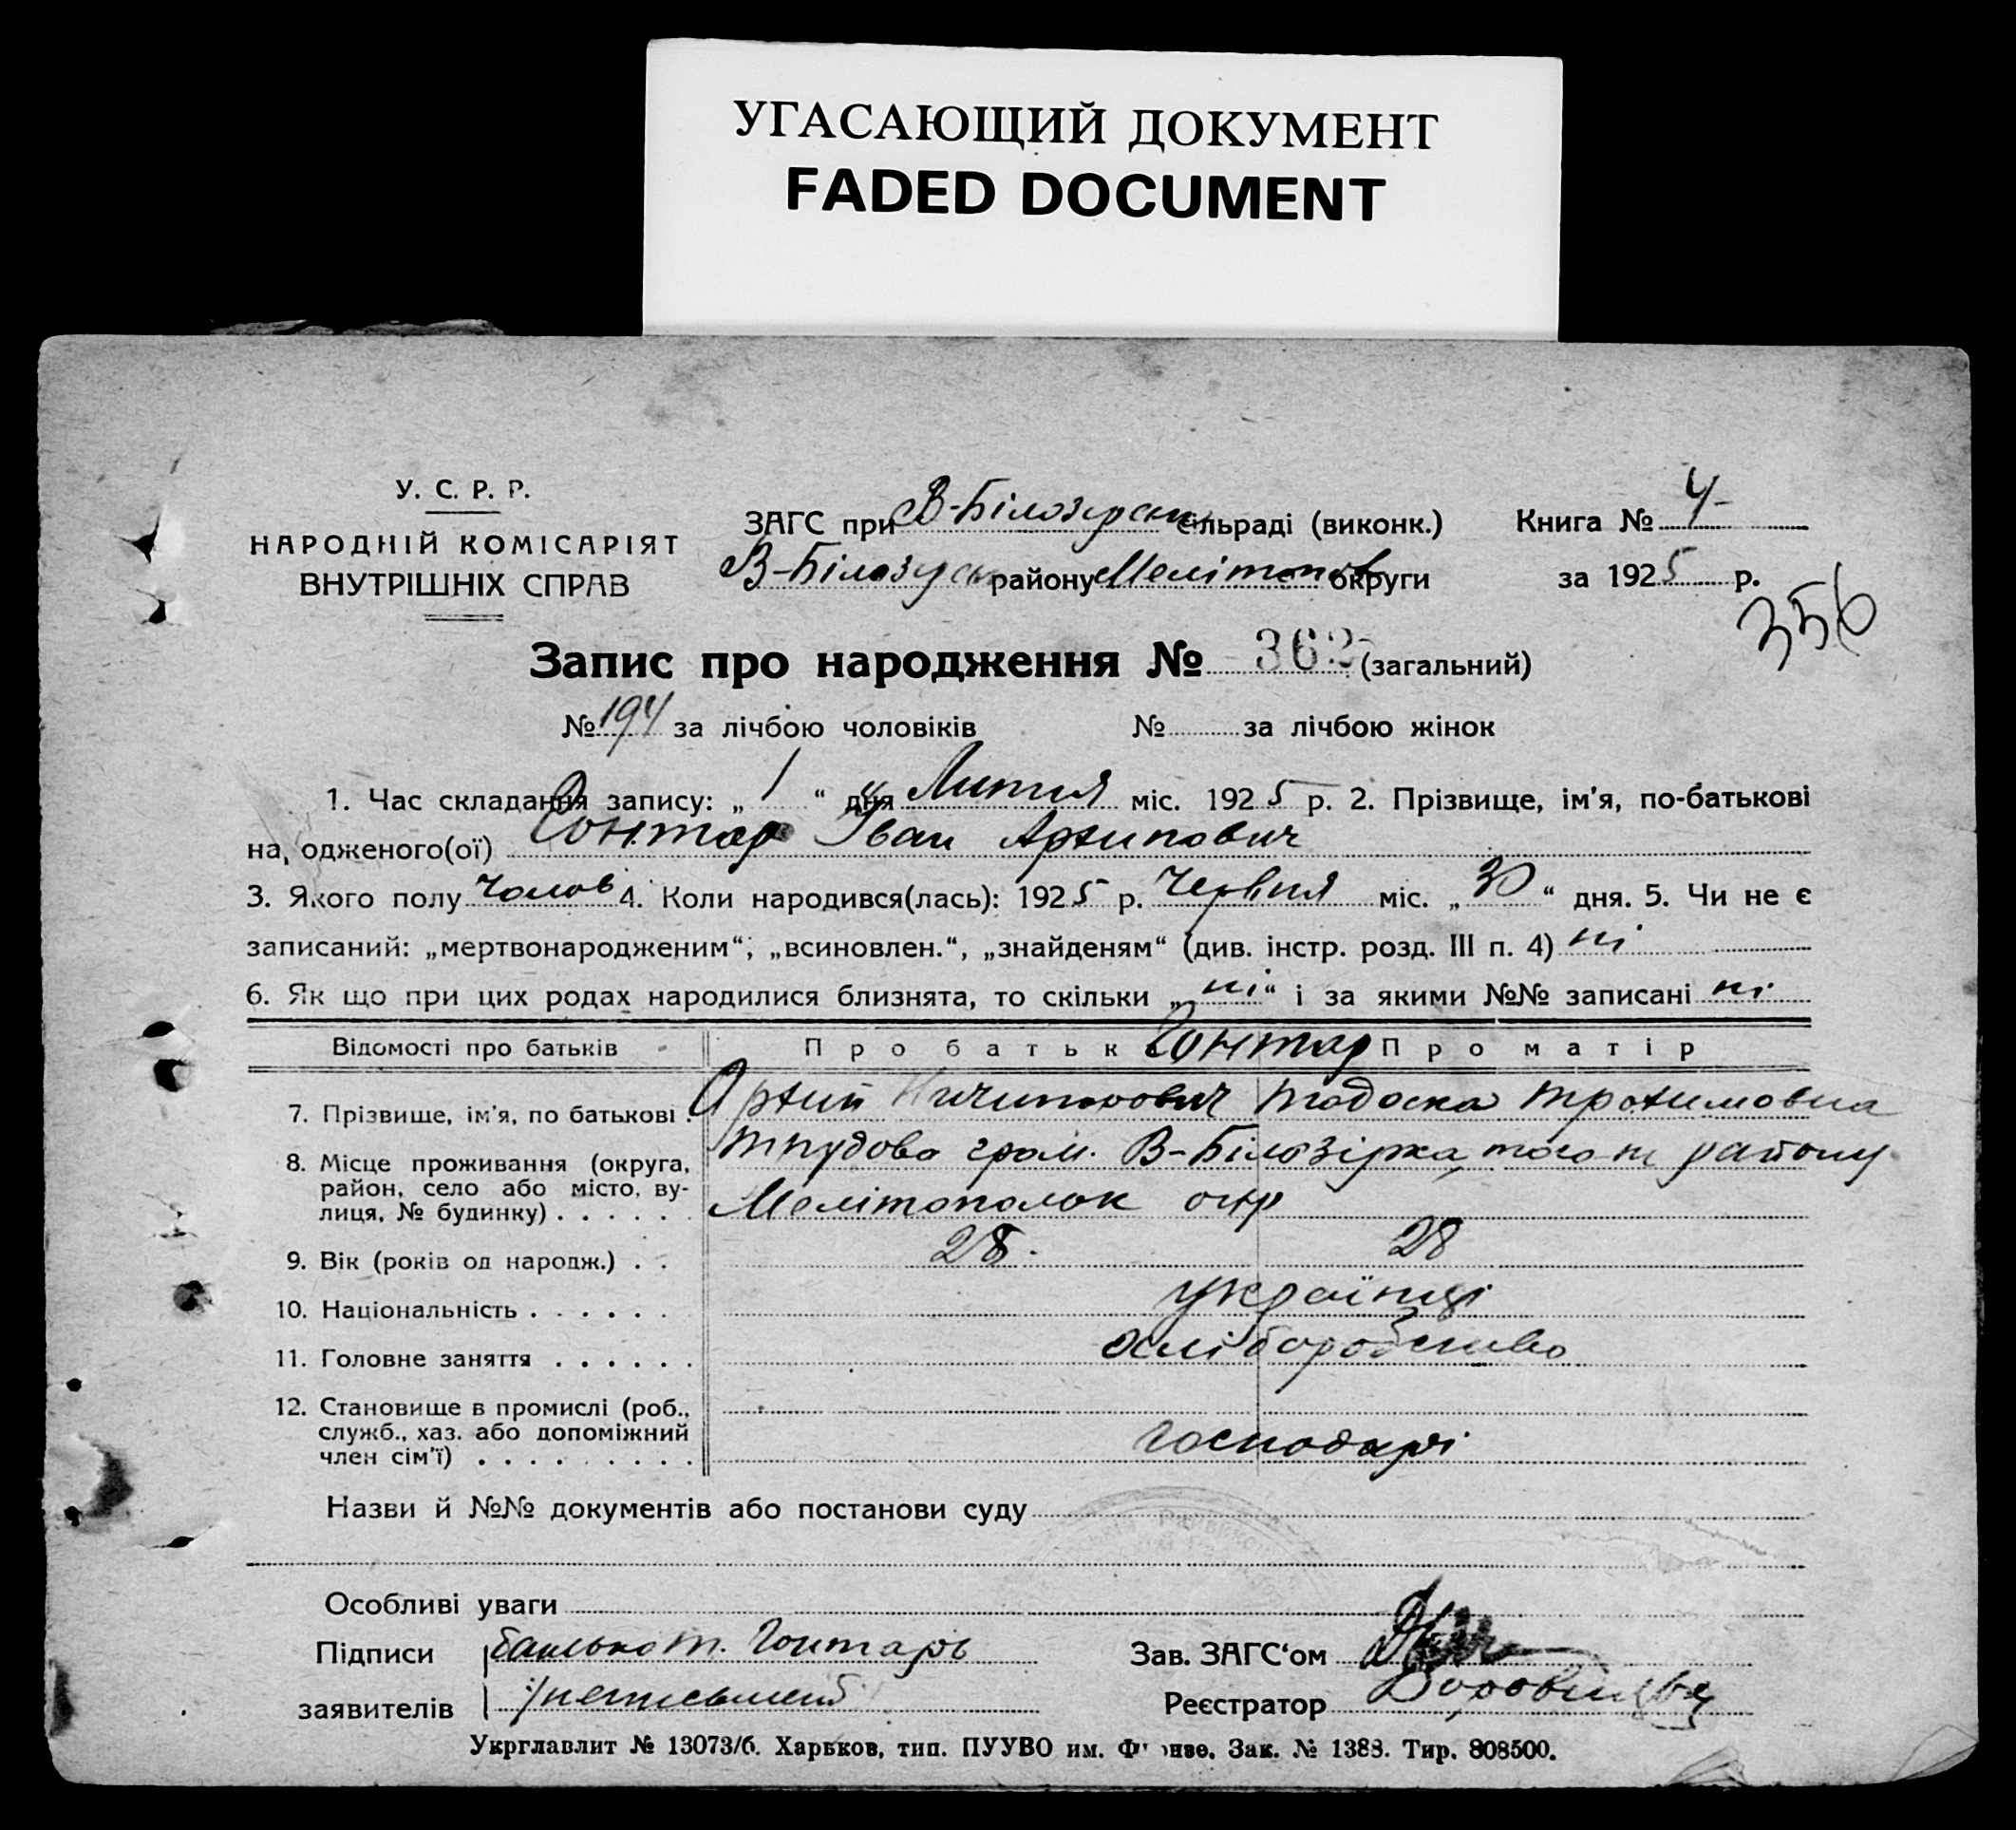 УГАСАЮЩИЙ ДОКУМЕНТ
FADED DOCUMENT
У. С. Р. Р.
НАРОДНІЙ КОМІСАРІЯТ
ВНУТРІШНІХ СПРАВ
ЗАГС при В-Білозерськ сільраді (виконк.)
В-Білозерськ району Мелітопов округи
Книга № 4
за 1925 р.
356
Запис про народження № 362 (загальний)
№ 194 за лічбою чоловіків № за лічбою жінок
1. Час складання запису: „ 1 “ дня Липня міс. 1925 р. 2. Прізвище, ім'я, по-батькові
на одженого(ої) Гонтар Іван Архипович
3. Якого полу Чолов 4. Коли народився(лась): 1925 р. Червня міс. „ 30 “ дня. 5. Чи не є
записаний: „мертвонародженим“; „всиновлен.“, „знайденям“ (див. інстр. розд. III п. 4) ні
6. Як що при цих родах народилися близнята, то скільки „ ні “ і за якими №№ записані ні
Відомості про батьків Про батьк Гонтар Про матір
7. Прізвище, ім'я, по батькові . Архип Ничипорович Тодоска Трохимовна
8. Місце проживання (округа, район, село або місто, ву-лиця, № будинку) . . . . . . Трудова гром. В-Білозірка, того ж району
Мелітополск окр
9. Вік (років од народж.) . . 28. 28
10. Національність . . . . . . українці
11. Головне заняття . . . . . . хліборобство
12. Становище в промислі (роб.,
служб., хаз. або допоміжний
член сім'ї) . . . . . . . . . господарі
Назви й №№ документів або постанови суду
Особливі уваги
Підписи батько т. Гонтарь Зав. ЗАГС‘ом
заявителів Реєстратор
Укрглавлит № 13073/б. Харьков, тип. ПУУВО им. Ф нзе. Зак. № 1388. Тир. 808500.